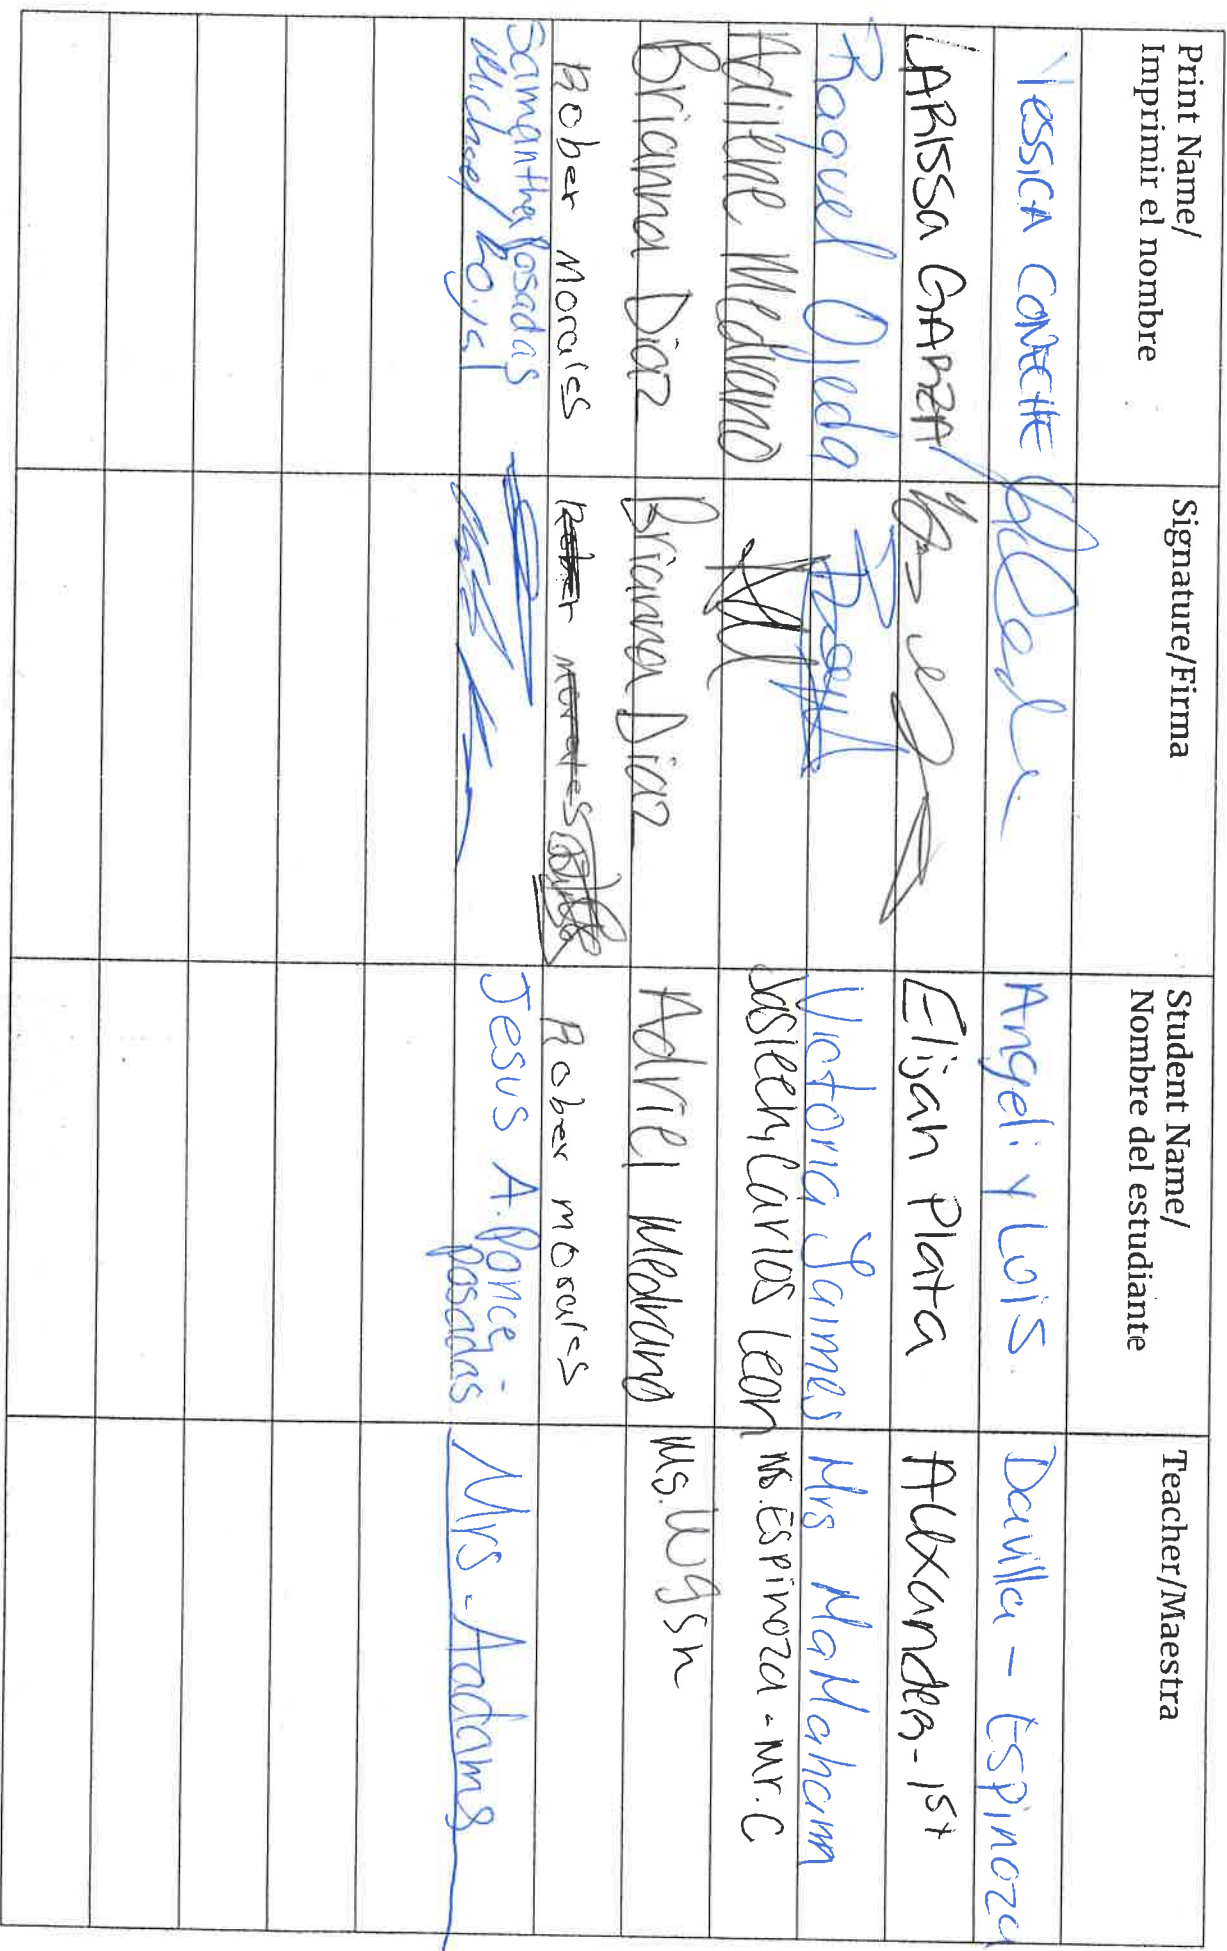 Print Name/
Imprimir el nombre
Signature/Firma
Student Name/
Nombre del estudiante
Teacher/Maestra
Yessica
Angeli y Luis
Davilla - Espinoza
LARISSA GARZA
Elijah Plata
Alexander - 1st
Raquel Ojeda
Victoria Jaimes
Mrs MaMahann
Adilene Medrano
Jasleen, Carlos Leon
Ms. Espinoza - Mr. C
Brianna Diaz
Brianna Diaz
Adriel Medrano
Ms.
Rober Morales
Rober Morales
Rober morales
Samantha Posadas
Michael
Jesus A. Ponce -
Posadas
Mrs - Aadams